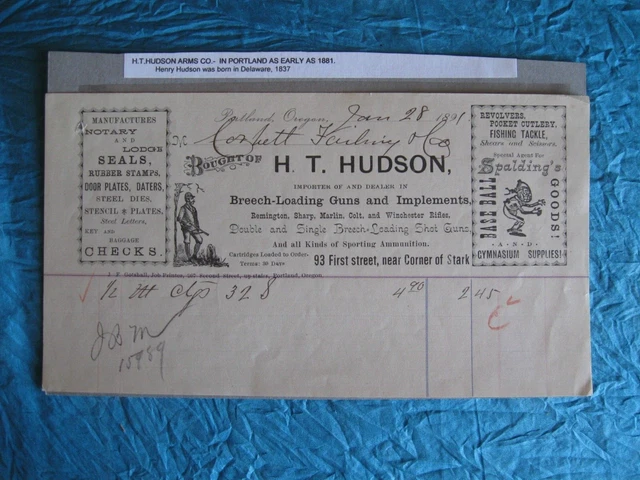 H.T.HUDSON ARMS CO.- IN PORTLAND AS EARLY AS 1881.
Henry Hudson was born in Delaware, 1837
MANUFACTURES
NOTARY
AND
LODGE
SEALS,
RUBBER STAMPS,
DOOR PLATES, DATERS,
STEEL DIES,
STENCIL PLATES,
Steel Letters,
KEY AND
BAGGAGE
CHECKS.
Portland, Oregon, Jan 28 1891
M Corbett Failing & Co
BOUGHT OF
H. T. HUDSON,
IMPORTER OF AND DEALER IN
Breech-Loading Guns and Implements,
Remington, Sharp, Marlin, Colt, and Winchester Rifles,
Double and Single Breech-Loading Shot Guns,
And all Kinds of Sporting Ammunition.
Cartridges Loaded to Order.
Terms: 30 Days
93 First street, near Corner of Stark
REVOLVERS,
POCKET CUTLERY,
FISHING TACKLE,
Shears and Scissors.
Special Agent For
Spalding's
BASE BALL
GOODS!
AND
GYMNASIUM SUPPLIES!
Job Printer, Second Street, up stairs, Portland, Oregon.
1/2 M Ctgs 32 S 4 90 2 45